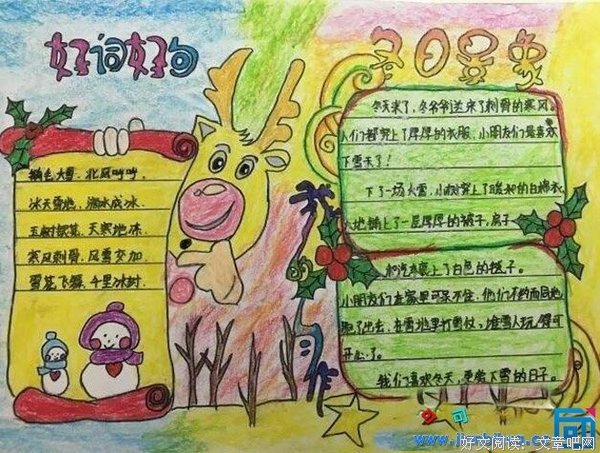 好词好句
鹅毛大雪、北风呼呼、
冰天雪地、滴水成冰、
玉树银装、天寒地冻、
寒风刺骨、风雪交加、
雪花飞舞、千里冰封、
习作
冬日景象
冬天来了，冬爷爷送来了刺骨的寒风。
人们都穿上了厚厚的衣服，小朋友们最喜欢
下雪天了！
下了一场大雪，小树穿上了暖和的白棉衣，
大地铺上了一层厚厚的被子，房子
和汽车裹上了白色的毯子。
小朋友们在家里可呆不住，他们不约而同地
跑了出去，在雪地里打雪仗，堆雪人玩得可
开心了。
我们喜欢冬天，更爱下雪的日子。
好文阅读：文章吧网